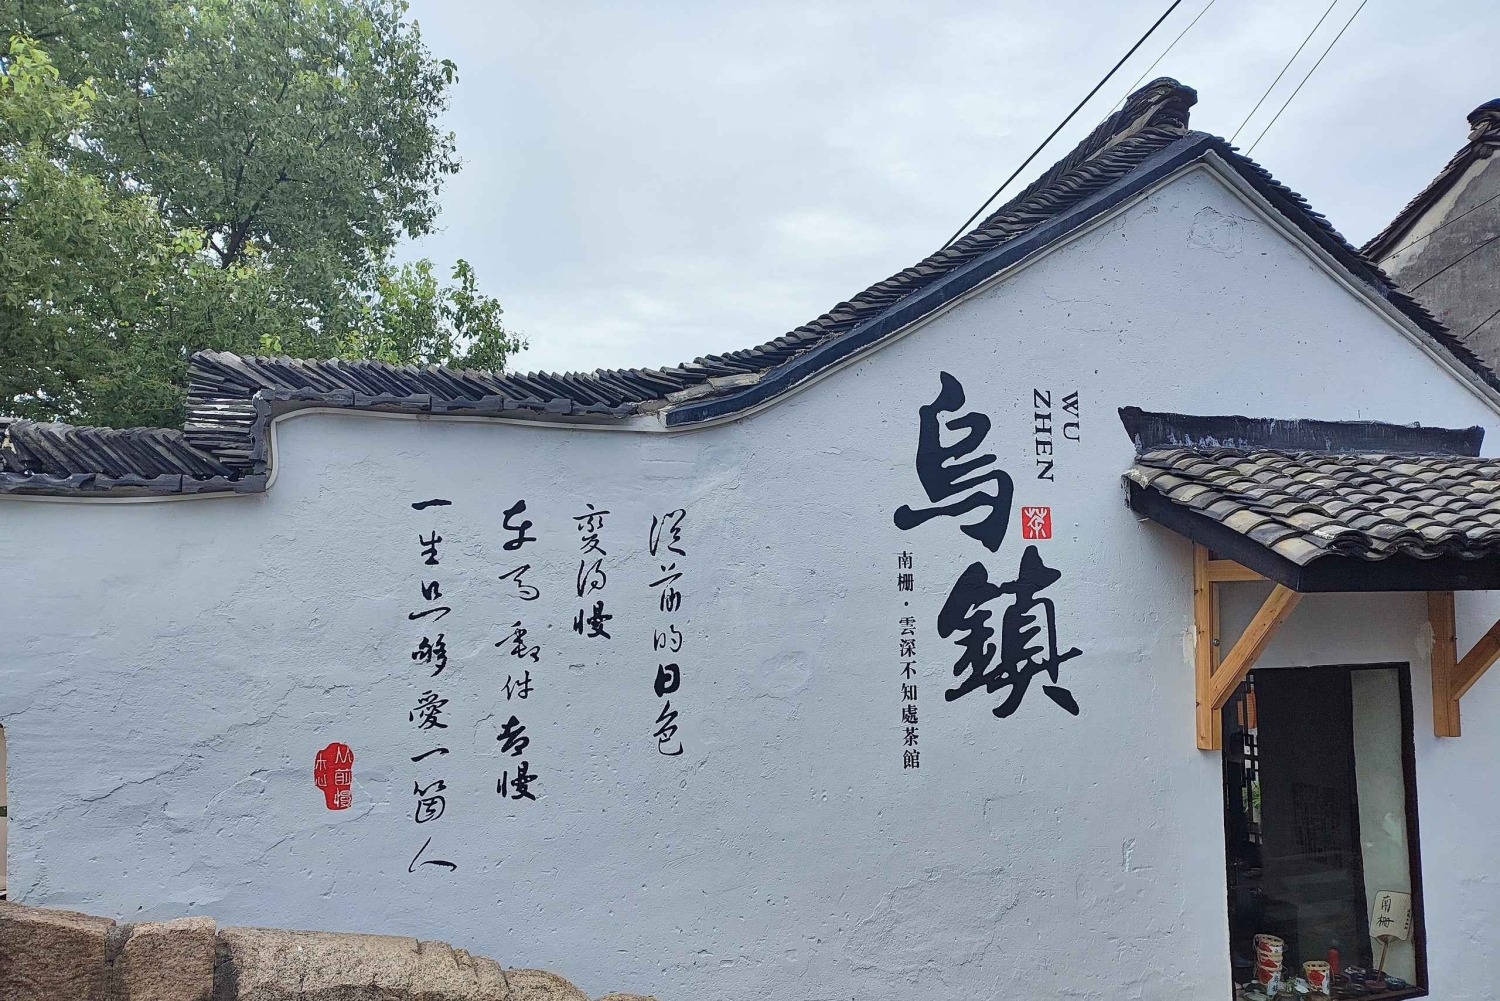 WU
ZHEN
烏鎮
茶
南栅·雲深不知處茶館
從前的日色
變得慢
车马邮件都慢
一生只够愛一箇人
从前慢
木心
南栅